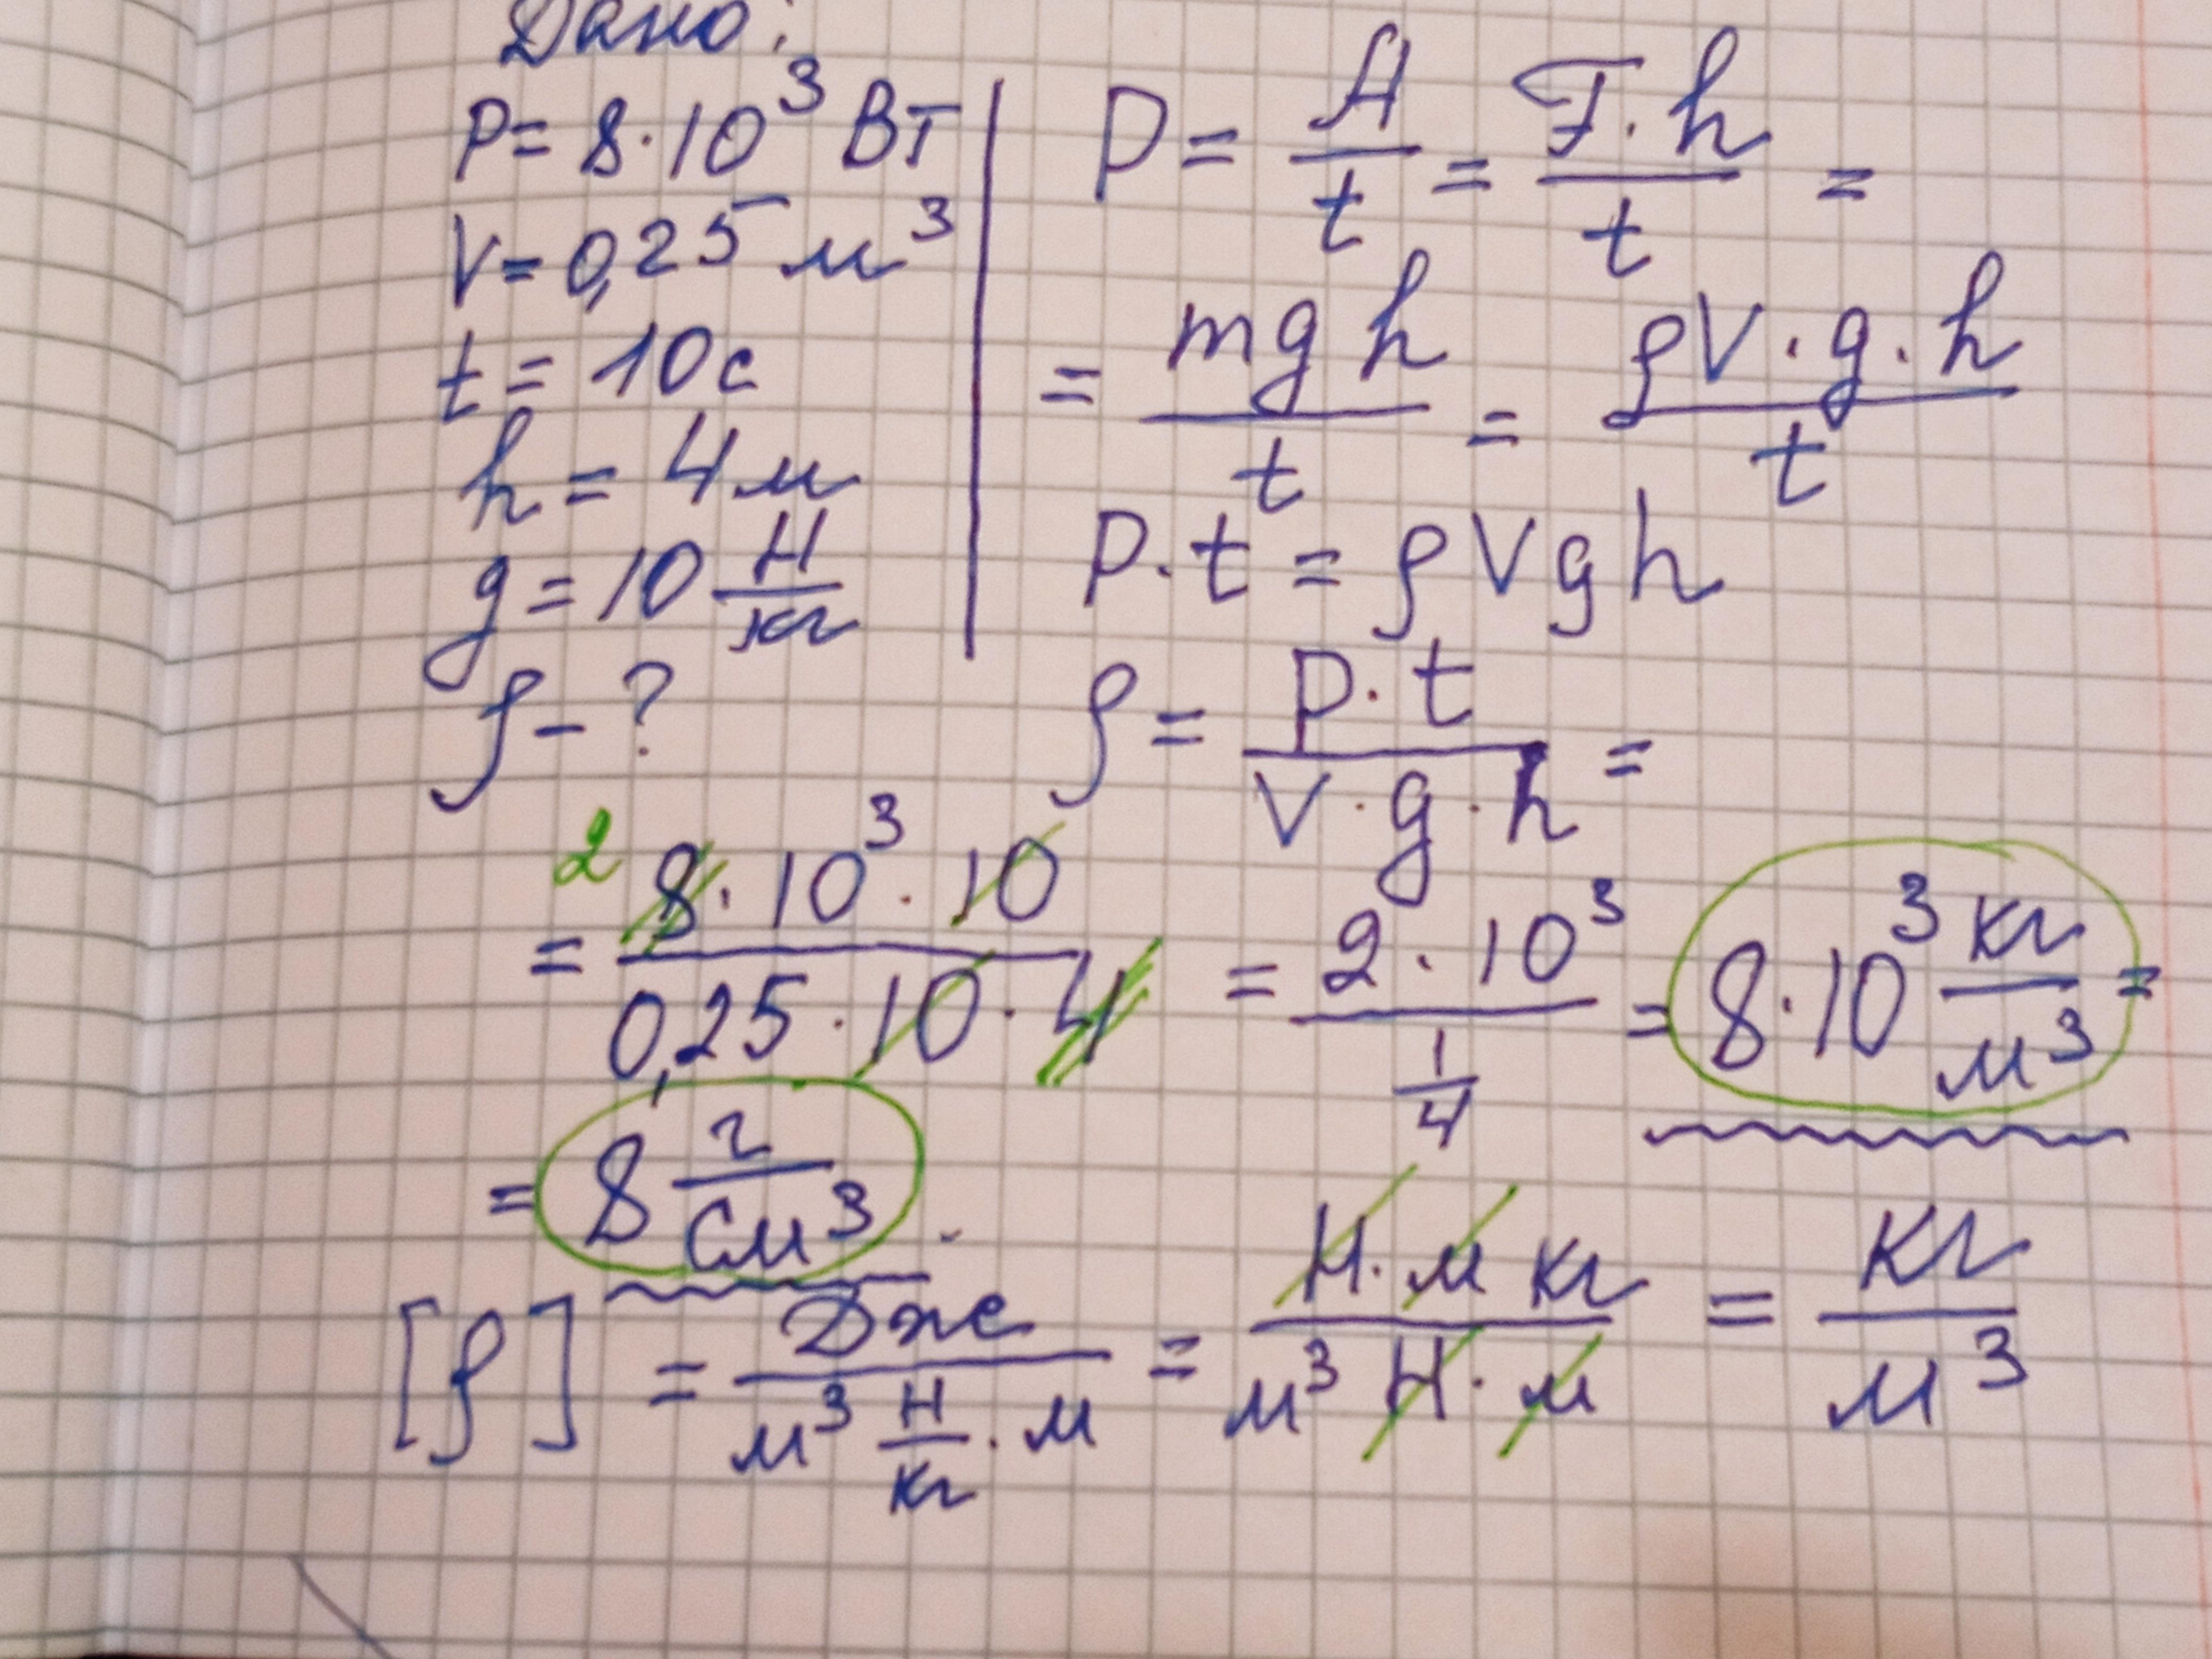 Дано:
P = 8·10³ Вт
V = 0,25 м³
t = 10 с
h = 4 м
g = 10 Н/кг
ρ - ?
P = A/t = F·h/t =
= mgh/t = ρV·g·h/t
P·t = ρVgh
ρ = P·t/(V·g·h) =
= 2 8·10³·10/(0,25·10·4) = 2·10³/(1/4) = 8·10³ кг/м³ =
= 8 г/см³.
[ρ] = Дж/(м³ Н/кг · м) = Н·м кг/(м³ Н·м) = кг/м³